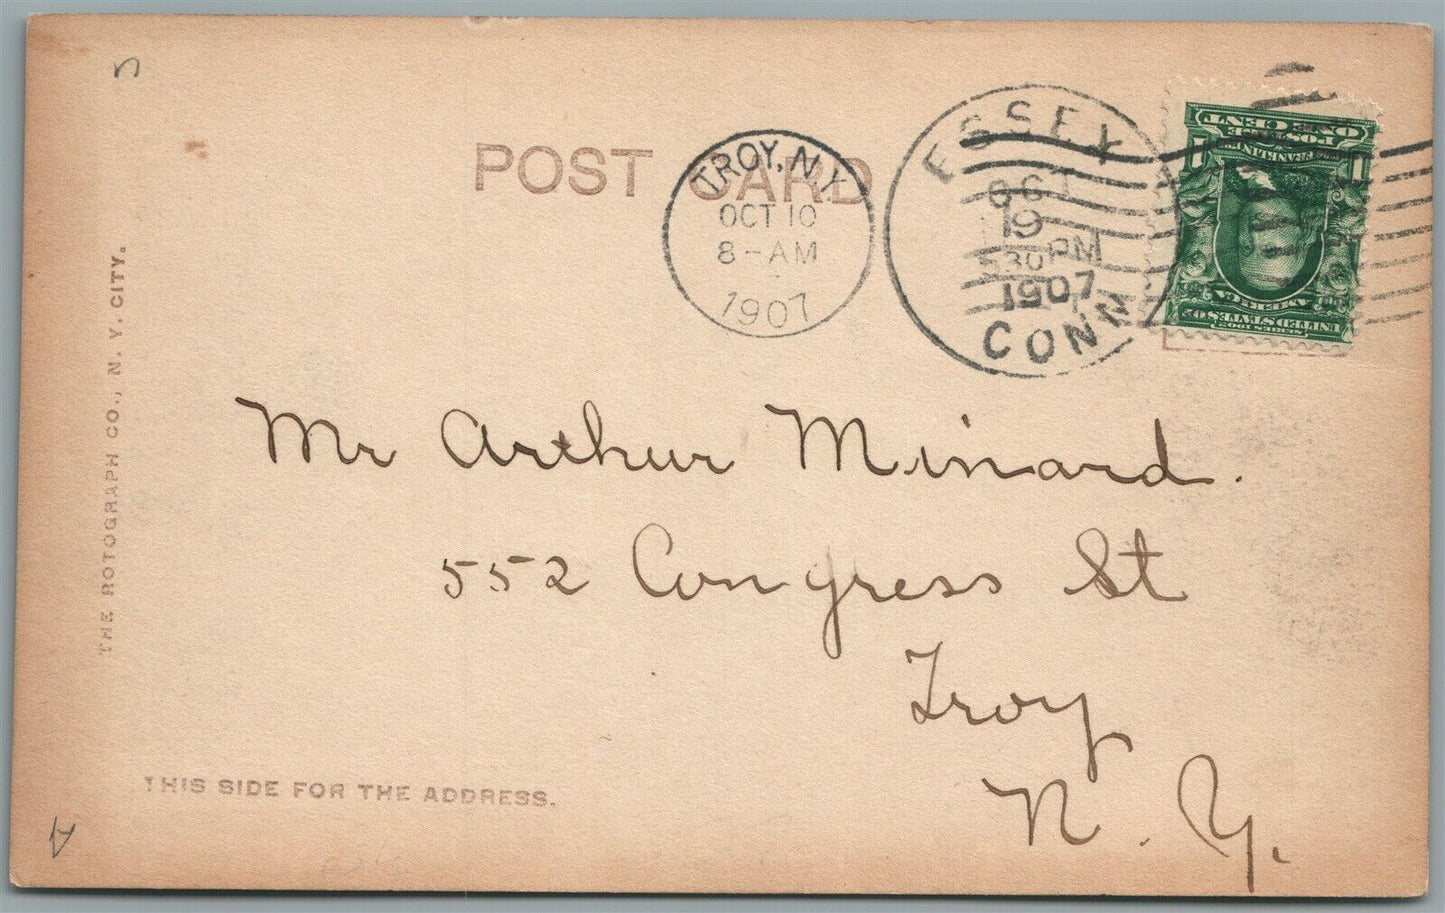 POST CARD
TROY, N.Y.
OCT 10
8-AM
1907
ESSEX
OCT
19
530PM
1907
CONN.
ONE CENT
POSTAGE
1 1
UNITED STATES OF AMERICA
SERIES 1902
THE ROTOGRAPH CO., N. Y. CITY.
Mr Arthur Minard.
552 Congress St
Troy
N. Y.
THIS SIDE FOR THE ADDRESS.
A